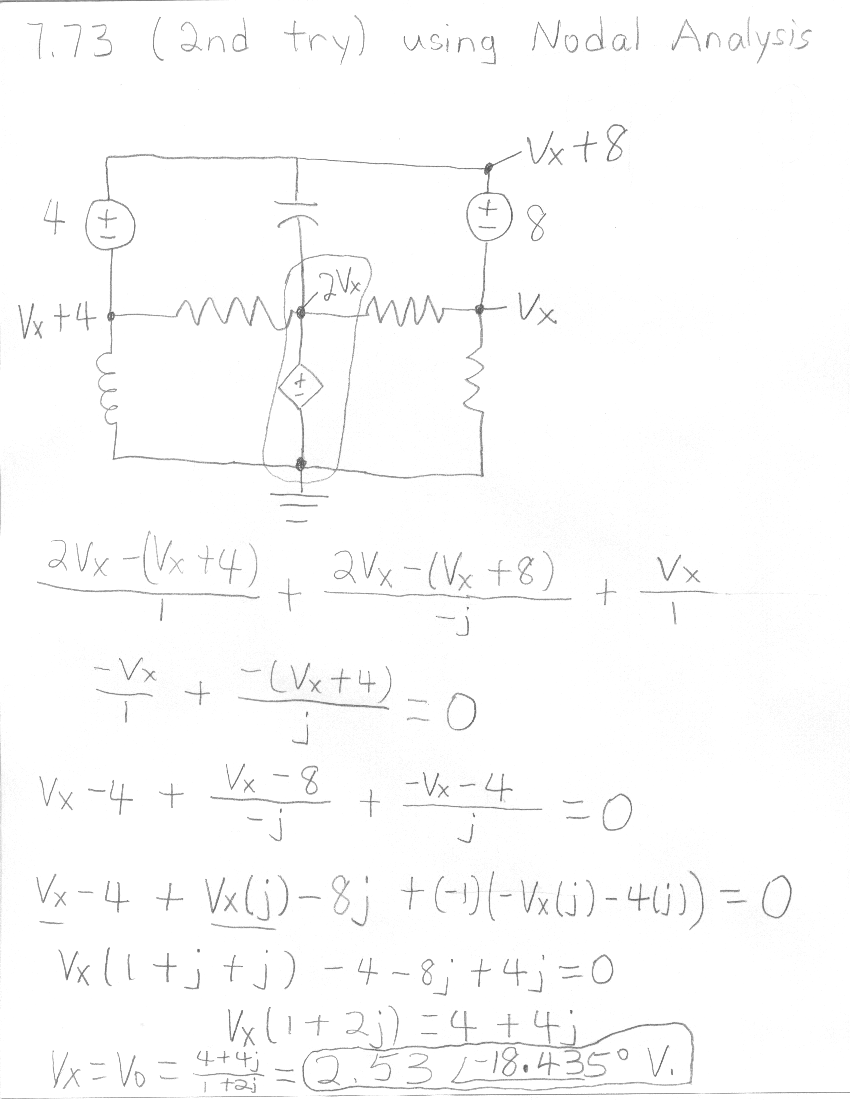 7.73 (2nd try) using Nodal Analysis
Vx + 8
4
+
-
+
-
8
2Vx
Vx + 4
Vx
+
-
(2Vx - (Vx + 4))/1 + (2Vx - (Vx + 8))/-j + Vx/1
-Vx/1 + -(Vx + 4)/j = 0
Vx - 4 + (Vx - 8)/-j + (-Vx - 4)/j = 0
Vx - 4 + Vx(j) - 8j + (-1)(-Vx(j) - 4(j)) = 0
Vx(1 + j + j) - 4 - 8j + 4j = 0
Vx(1 + 2j) = 4 + 4j
Vx = Vo = (4+4j)/(1+2j) = 2.53 ∠-18.435° V.